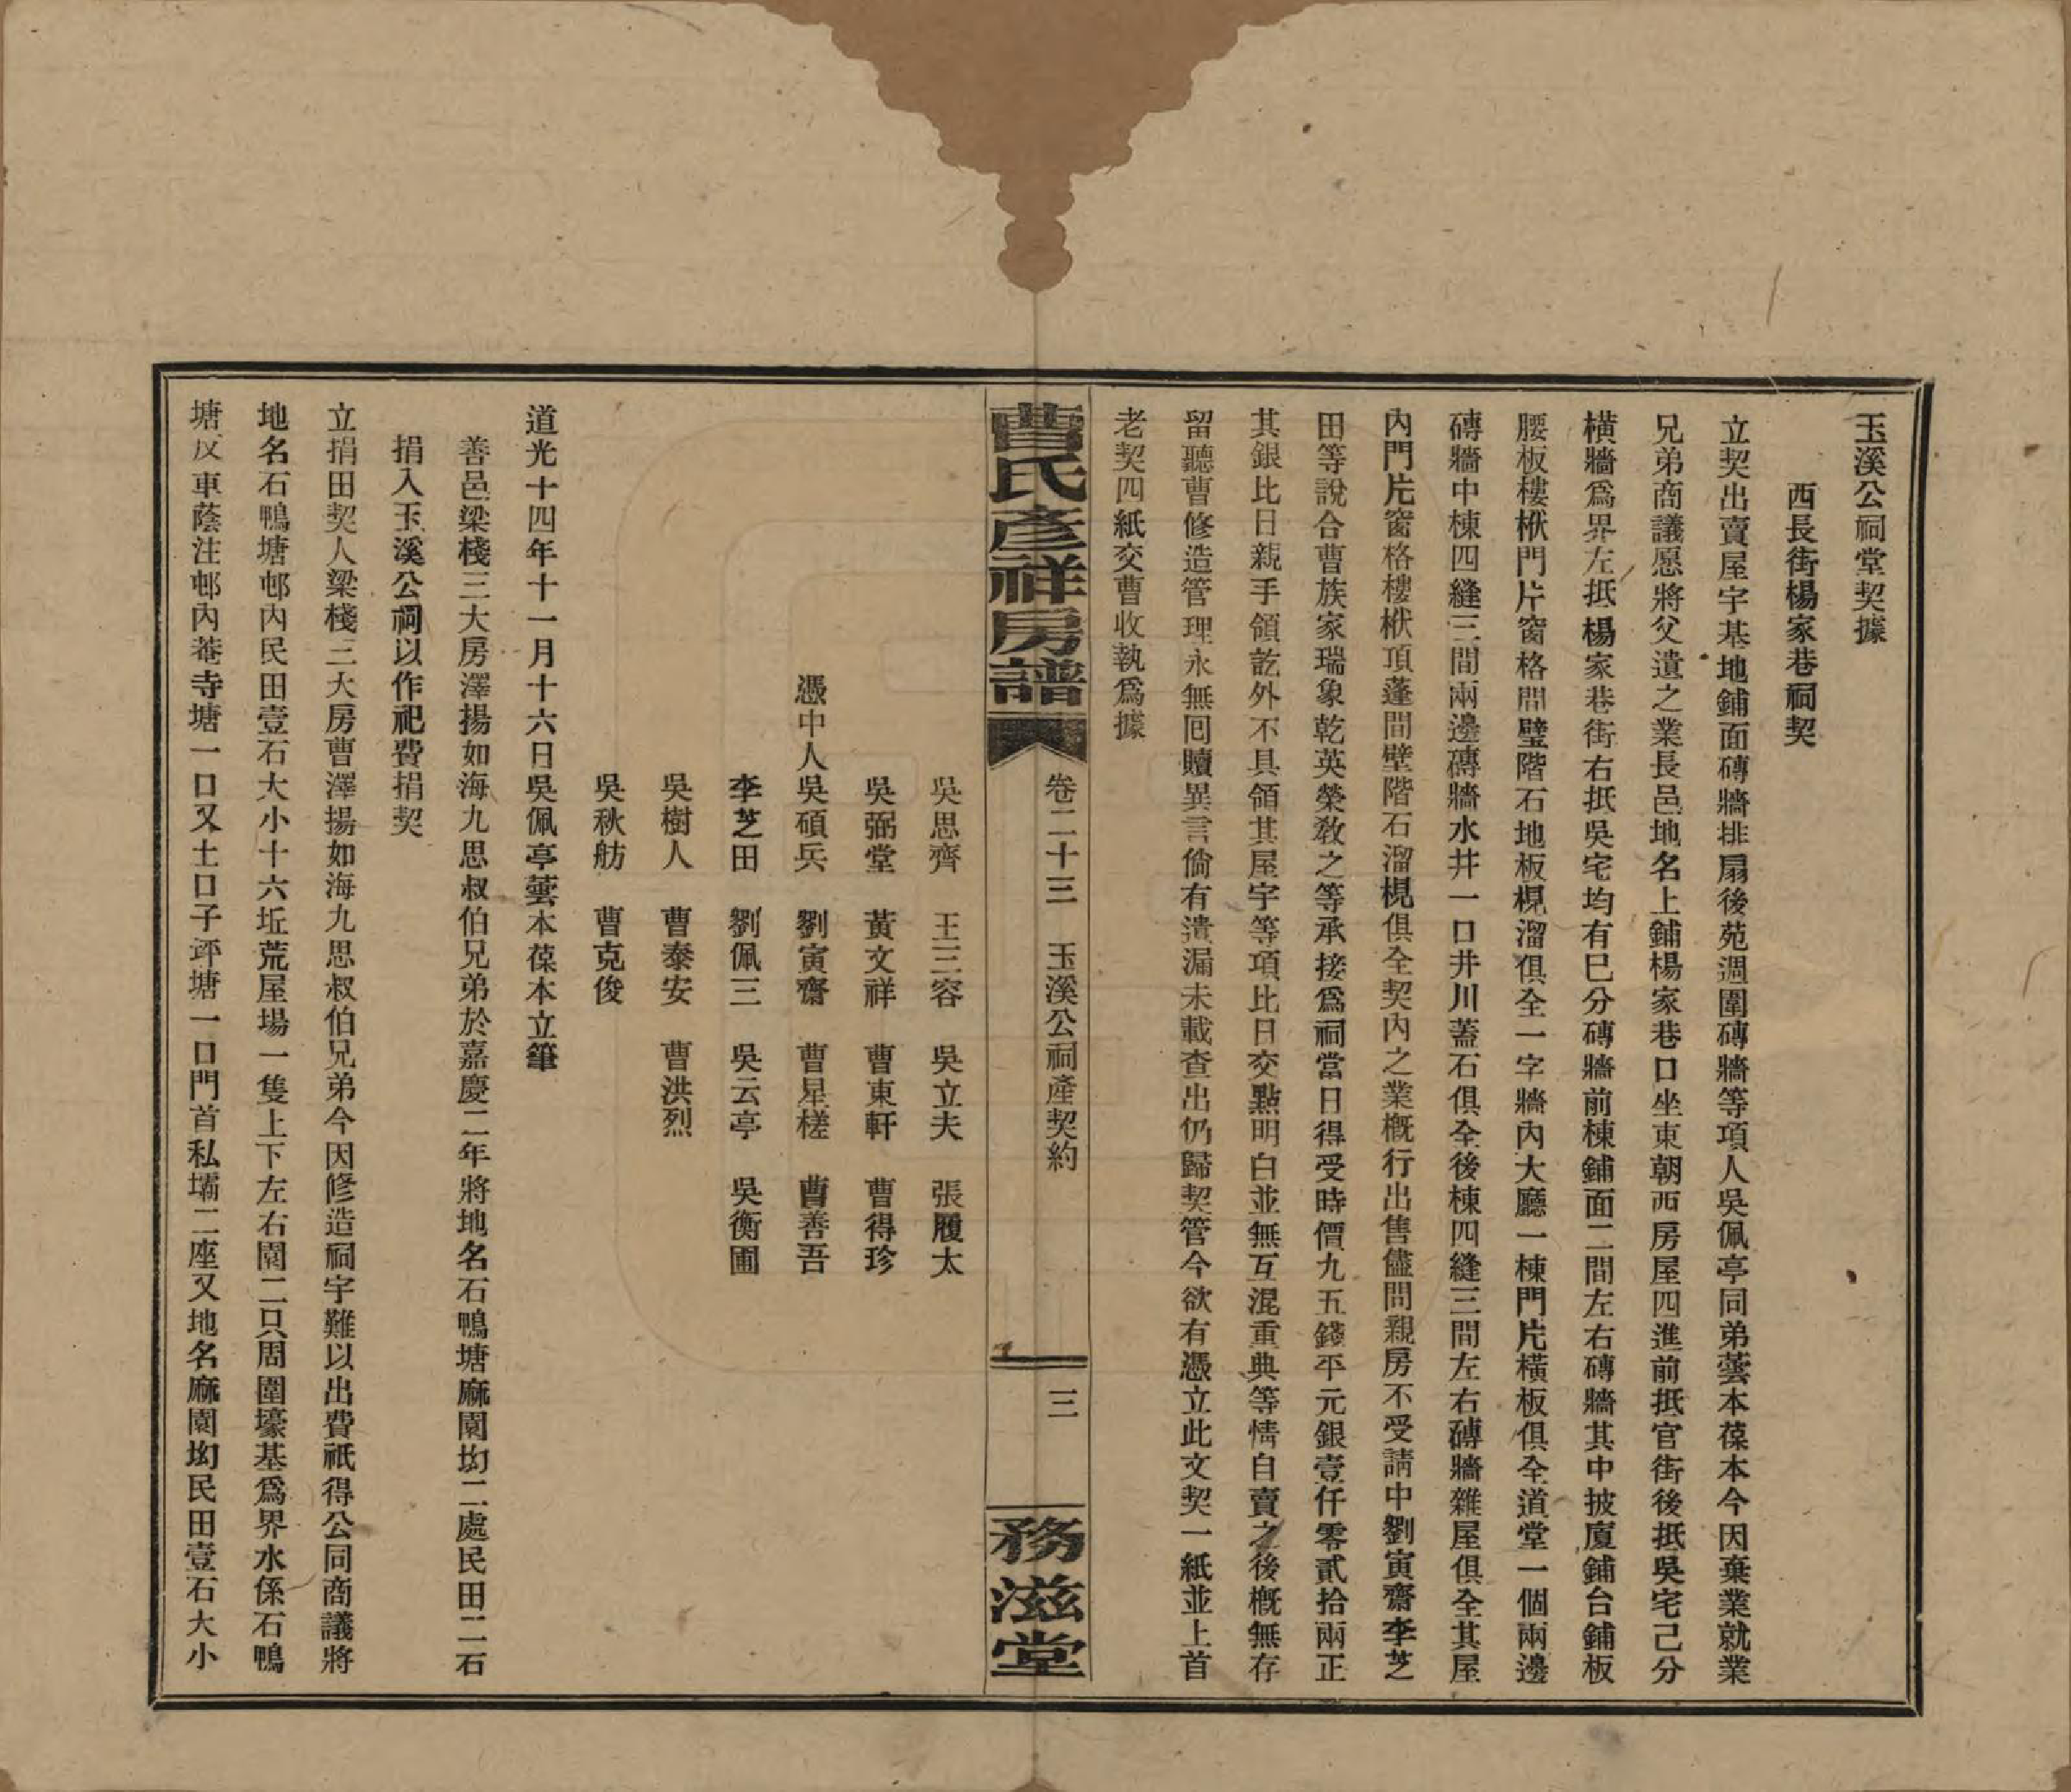 玉溪公祠堂契據
西長街楊家巷祠契
立契出賣屋宇基地鋪面磚牆排扇後苑週圍磚牆等項人吳佩亭同弟蕓本葆本今因棄業就業
兄弟商議愿將父遺之業長邑地名上鋪楊家巷口坐東朝西房屋四進前抵官街後抵吳宅己分
橫牆爲界左抵楊家巷街右抵吳宅均有巳分磚牆前棟鋪面二間左右磚牆其中披廈鋪台鋪板
腰板樓栿門片窗格間壁階石地板梘溜俱全一字牆內大廳一棟門片橫板俱全道堂一個兩邊
磚牆中棟四縫三間兩邊磚牆水井一口井川蓋石俱全後棟四縫三間左右磚牆雜屋俱全其屋
內門片窗格樓栿頂蓬間壁階石溜梘俱全契內之業概行出售儘問親房不受請中劉寅齋李芝
田等說合曹族家瑞象乾英榮敎之等承接爲祠當日得受時價九五錢平元銀壹仟零貳拾兩正
其銀比日親手領訖外不具領其屋宇等項比日交點明白並無互混重典等情自賣之後概無存
留聽曹修造管理永無囘贖異言倘有遺漏未載查出仍歸契管今欲有憑立此文契一紙並上首
老契四紙交曹收執爲據
曹氏彥祥房譜
卷二十三　玉溪公祠產契約
三
務滋堂
吳思齊　王三容　吳立夫　張履太
吳弼堂　黃文祥　曹東軒　曹得珍
憑中人吳碩兵　劉寅齋　曹星槎　曹善吾
李芝田　劉佩三　吳云亭　吳衡圃
吳樹人　曹泰安　曹洪烈
吳秋舫　曹克俊
道光十四年十一月十六日吳佩亭蕓本葆本立筆
善邑梁棧三大房澤揚如海九思叔伯兄弟於嘉慶二年將地名石鴨塘麻園㘭二處民田二石
捐入玉溪公祠以作祀費捐契
立捐田契人梁棧三大房曹澤揚如海九思叔伯兄弟今因修造祠宇難以出費祇得公同商議將
地名石鴨塘邨內民田壹石大小十六坵荒屋場一隻上下左右園二只周圍壕基爲界水係石鴨
塘反車蔭注邨內菴寺塘一口又土口子坪塘一口門首私壩二座又地名麻園㘭民田壹石大小